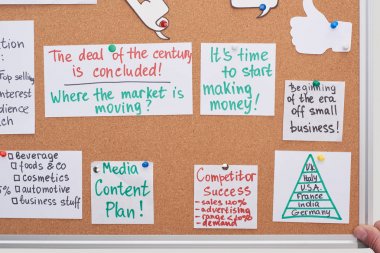 tion:
Top sell
interest
dience
ch
The deal of the century
is concluded!
Where the market is
moving?
It's time
to start
making
money!
Beginning
of the era
off small
business!
Beverage
foods & Co
cosmetics
5% automotive
business stuff
Media
Content
Plan!
Competitor
Success
- sales 120%
- advertising
- range <20%
- demand
UK
Italy
U.S.A.
France
India
Germany